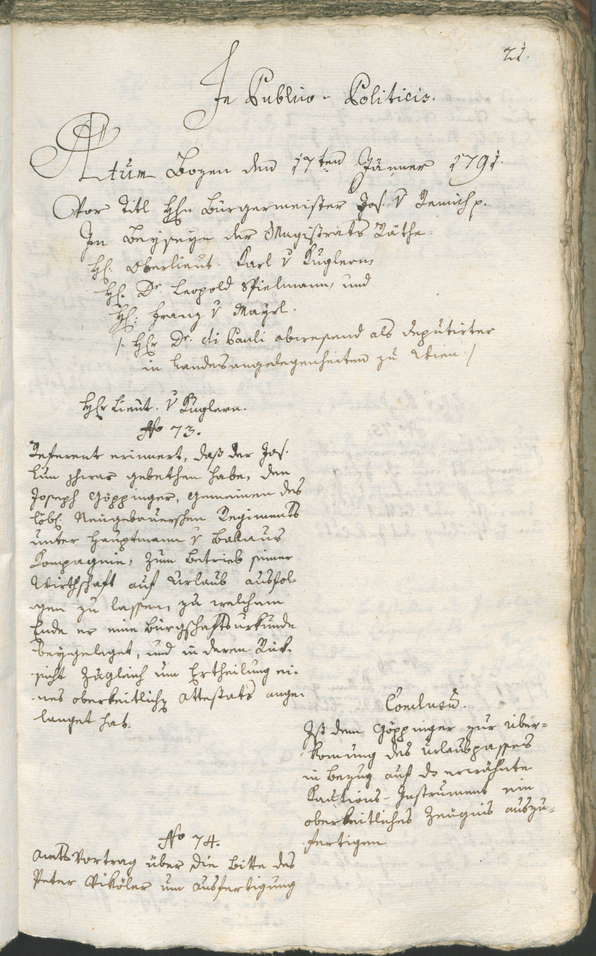 21.
In Publico-Politicis.
Actum Bozen den 17ten Jänner 1791
Vor Titl Hhn Bürgermeister Jos. v Remich p.
In Beyseyn der Magistrats Räthe
Hh. Oberlieut. Karl v Kuglern,
Hh. Dr. Leopold Spielmann, und
Hh. Franz v Mayrl.
/: Hhr Dr. di Pauli abwesend als deputirter
in Landesangelegenheiten zu Wien :/
Hhr Lieut. v Kuglern.
No 73.
Referent erinnert, daß der Jos.
gebethen habe, den
Joseph Göppinger, Gemeinen des
löbl. Neugebauerschen Regiments
unter Hauptmann v
Kompagnie, zum Betrieb seiner
Wirthschaft auf Urlaub ausfol-
gen zu lassen, zu welchem
Ende er eine Bürgschaftsurkunde
beygeleget, und in deren Rück-
sicht zugleich um Ertheilung ei-
nes oberkeitlichen Attestats ange-
langet hat.
Conclusū.
Ist dem Göppinger zur Über-
kommung des Urlaubpasses
in Bezug auf do erwähnte
Kautions-Instrument ein
oberkeitliches Zeugnis auszu-
fertigen
No 74.
Amts Vortrag über die Bitte des
Peter um Ausfertigung